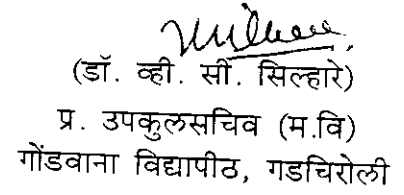 (डॉ. व्ही. सी. सिल्हारे)
प्र. उपकुलसचिव (म.वि)
गोंडवाना विद्यापीठ, गडचिरोली